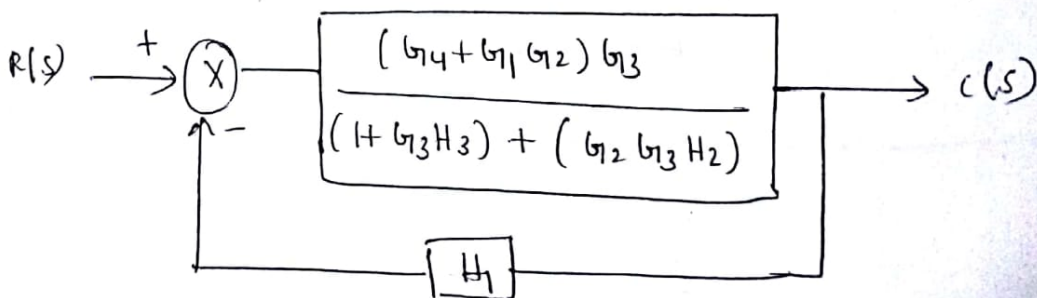 R(S) + X (G4+G1G2)G3 C(S)
- (1+G3H3) + (G2G3H2)
H1